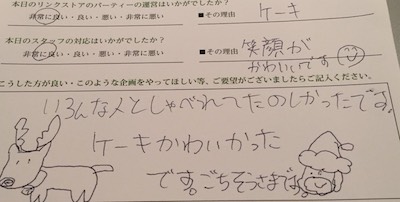 本日のリンクストアのパーティーの運営はいかがでしたか？
非常に良い・良い・悪い・非常に悪い
■その理由
ケーキ
本日のスタッフの対応はいかがでしたか？
非常に良い・良い・悪い・非常に悪い
■その理由
笑顔が
かわいいです
こうした方が良い・このような企画をやってほしい等、ご要望がございましたらご記入ください。
いろんな人としゃべられてたのしかったです。
ケーキかわいかった
です。ごちそうさまです。